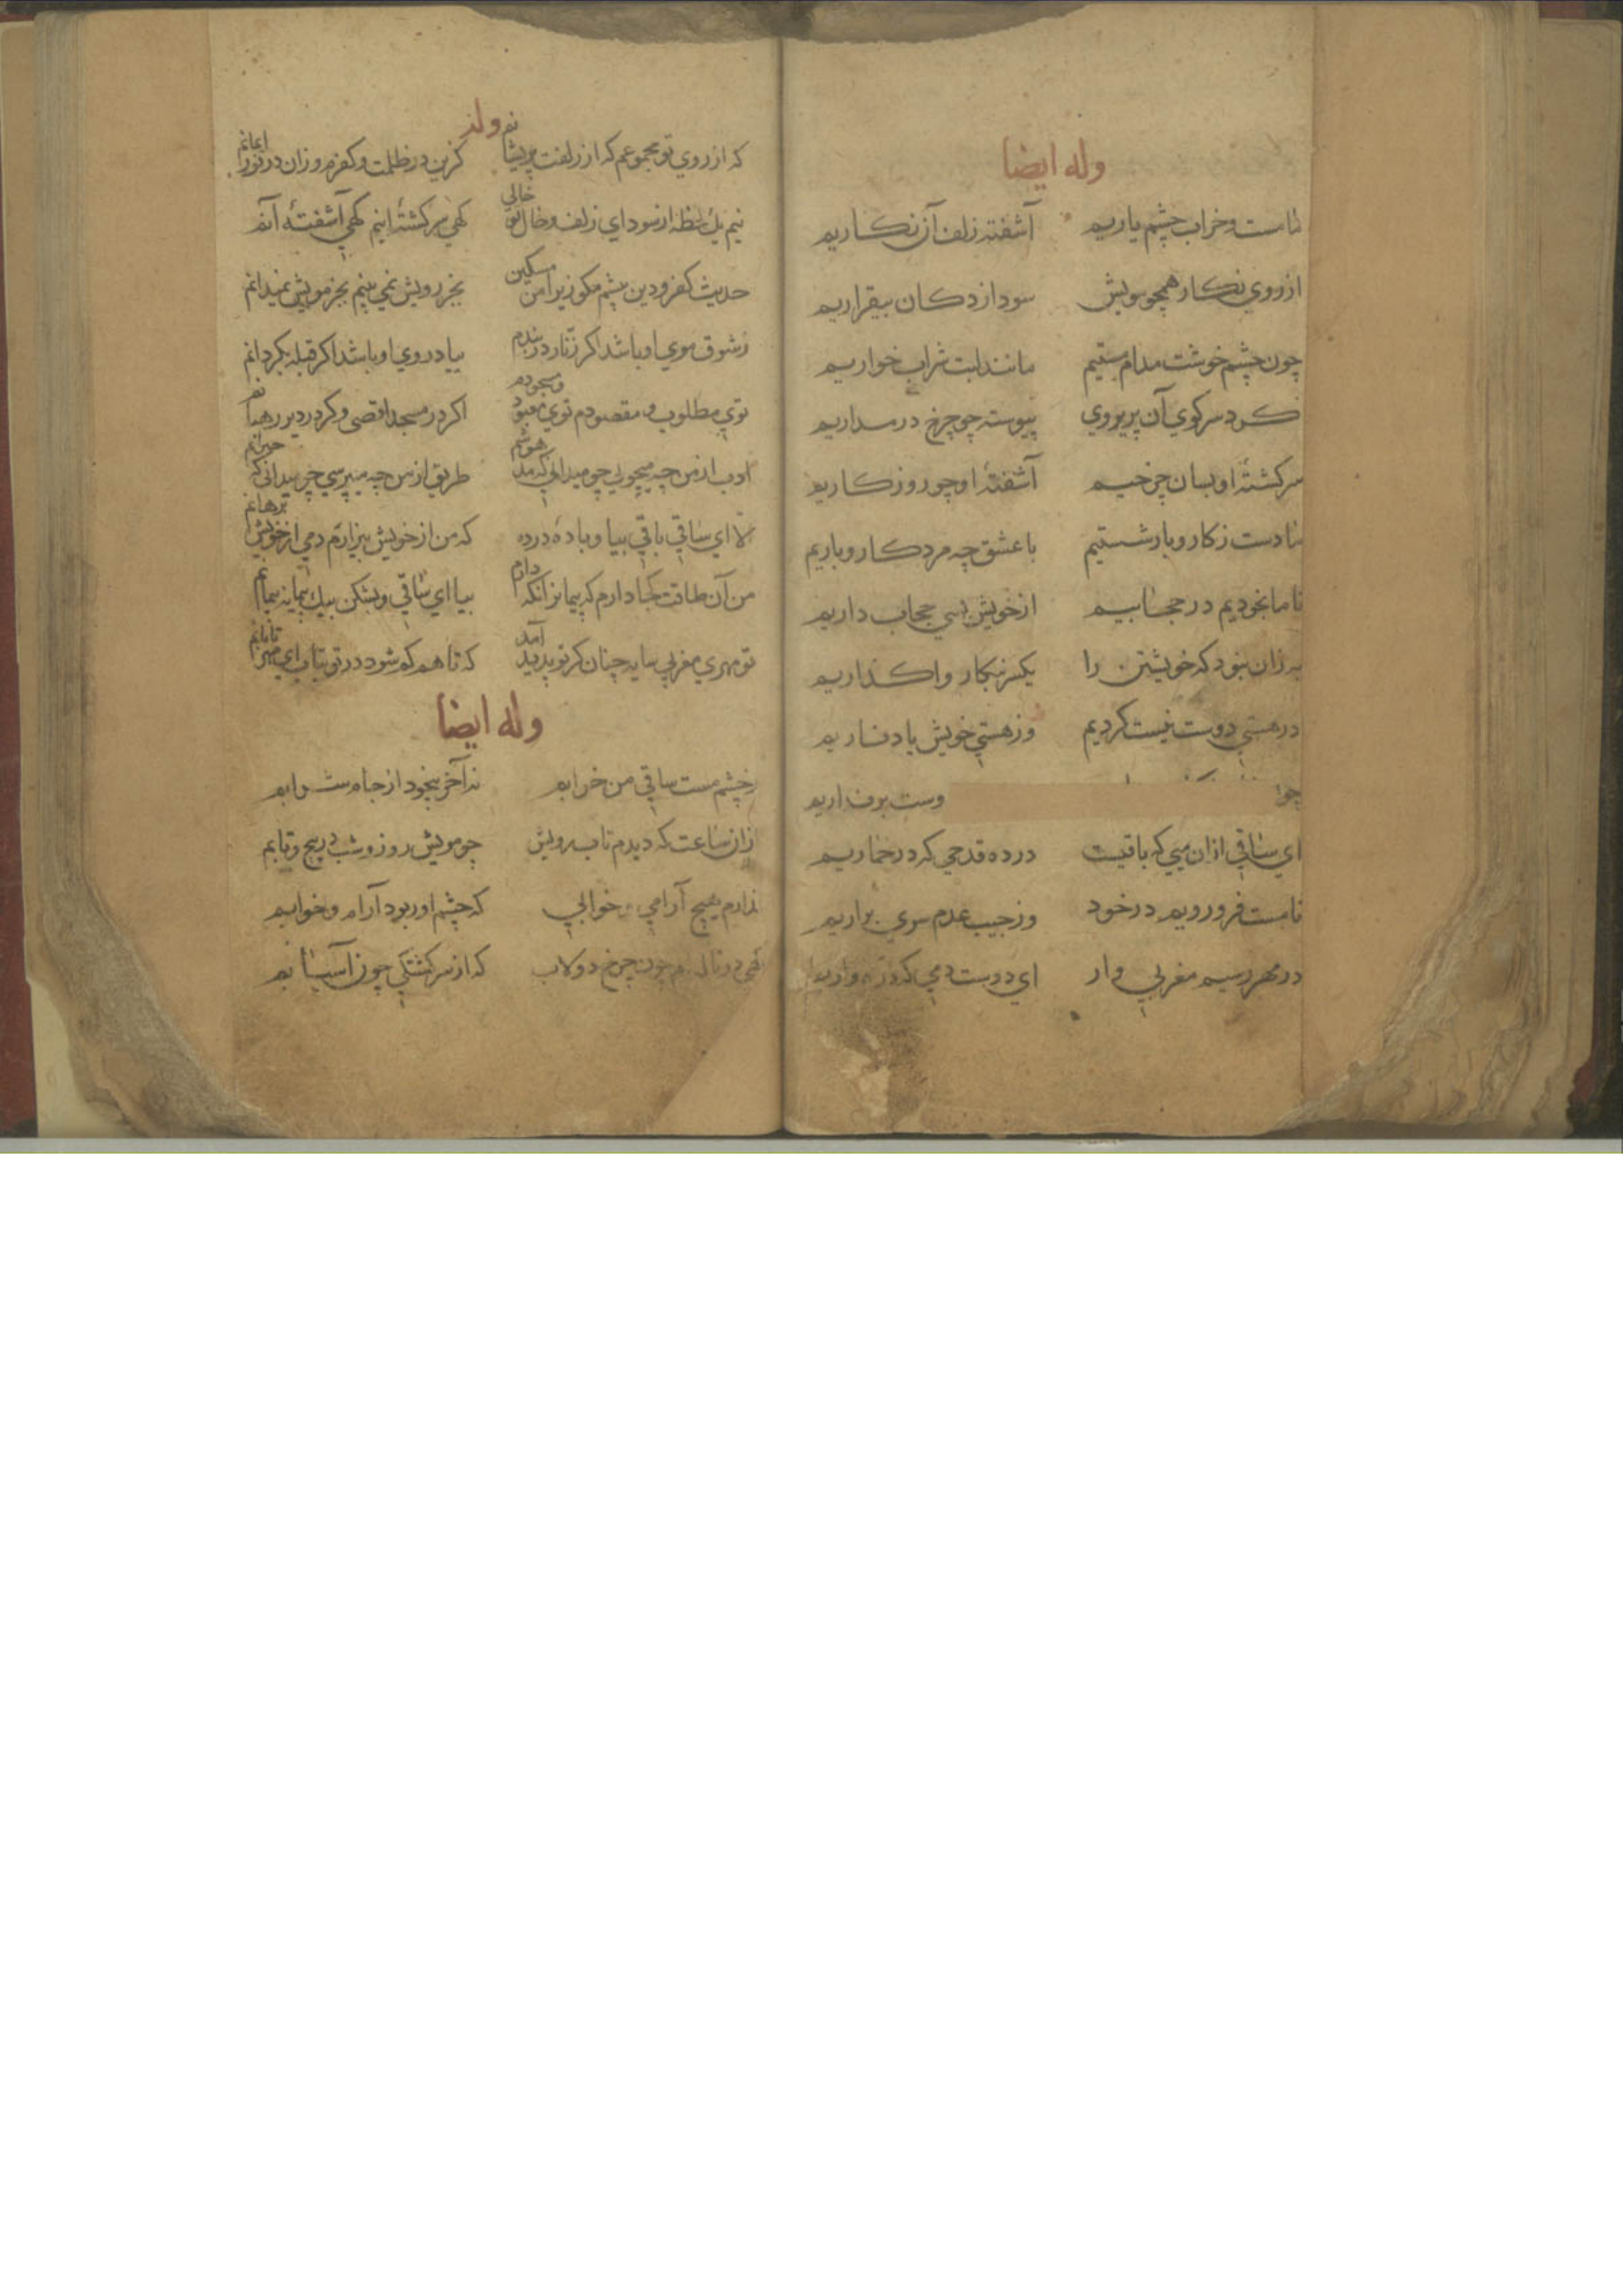 وله ايضا
تا مست و خراب چشم ياريم آشفته زلف آن نكاريم
از روي نكار همچو مويش سودازدكان بيقراريم
چون چشم خوشت مدام مستيم مانند لبت شراب خواريم
كرد سر كوي آن پريروي پيوسته چو چرخ در مداريم
سركشتهٔ او بسان چرخيم آشفتهٔ او چو روزكاريم
تا دست ز كار و بار شستيم با عشق چه مرد كار و باريم
تا ما بخوديم در حجابيم از خويش بسي حجاب داريم
به زان نبود كه خويشتن را يكسر بنكار واكذاريم
در هستي دوست نيست كرديم وز هستي خويش ياد ناريم
چو وست برنداريم
اي ساقي ازان ميي كه باقيست درده قدحي كه در خماريم
تا مست فرورويم در خود وز جيب عدم سري براريم
در مهر رسيم مغربي وار اي دوست دمي كه ذره واريم
وله
كه از روي تو مجموعم كه از زلفت پريشانم كزين در ظلمت و كفرم وزان در نور ايمانم
نيم يك لحظه از سوداي زلف و خال تو خالي كهي سركشتهٔ اينم كهي آشفتهٔ آنم
حديث كفر و دين پيشم مكو زيرا من مسكين بجز رويش نمي بينم بجز مويش نميدانم
ز شوق موي او باشد اكر زنار در بندم بياد روي او باشد اكر قبله بكردانم
توي مطلوب و مقصودم توي معبود و مسجودم اكر در مسجد اقصى وكر در دير رهبانم
ادب از من چه ميجويي چو ميداني كه مدهوشم طريق از من چه ميپرسي چو ميداني كه حيرانم
الا اي ساقي باقي بيا و باده درده كه من از خويش بيزارم دمي از خويش برهانم
من آن طاقت كجا دارم كه پيمان را نكه دارم بيا اي ساقي و بشكن بيك پيمانه پيمانم
تو مهري مغربي سايه چنان كز تو پديد آمد كه تا هم كم شود در تو بتاب اي مهر تابانم
وله ايضا
ز چشم مست ساقي من خرابم نه آخر بيخود از جام شرابم
ازان ساعت كه ديدم تاب رويش چو مويش روز و شب در پيچ و تابم
ندارم هيچ آرامي و خوابي كه چشم او ربود آرام و خوابم
كهي در ناله ام چون چرخ دولاب كه از سركشتكي چون آسيابم